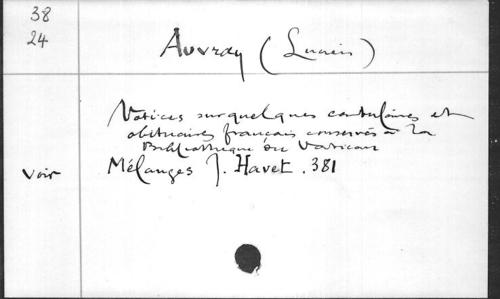 38
24
Auvray (Lucien)
Notices sur quelques cartulaires et
obituaires français conservés à la
Bibliothèque du Vatican
Voir Mélanges J. Havet . 381